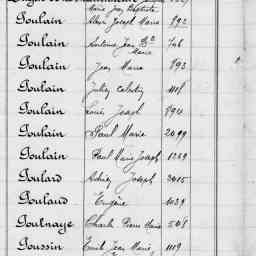 Marie Jean Baptiste
Poulain Joseph Marie 892
Poulain Antoine Jean Bte
Marie 746
Poulain Jean Marie 893
Poulain Julien 1118
Poulain Louis Joseph 894
Poulain Paul Marie 2099
Poulain Paul Marie Joseph 1269
Poulard 2415
Poulaud Eugène 1039
Poutnaye Charles Pierre Marie 548
Poussin Emile Jean Marie 1119